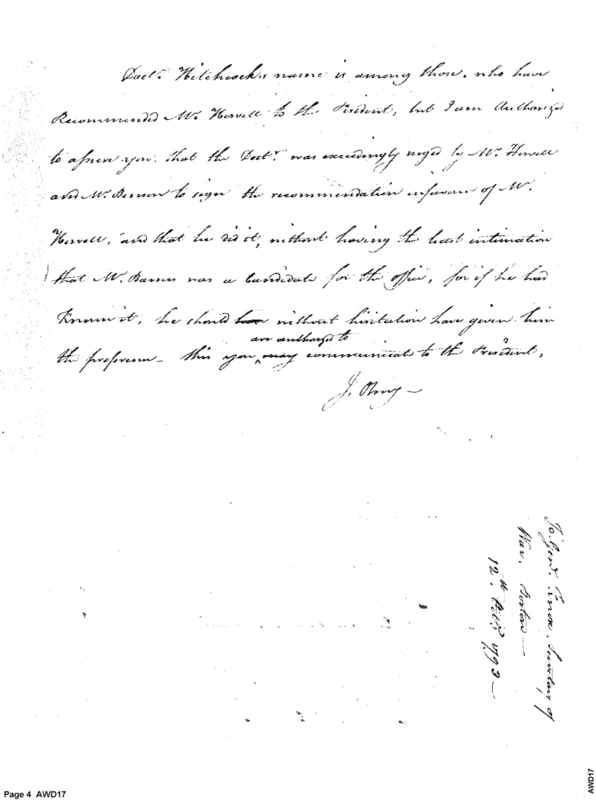 Doctr. Hitchcock's name is among those, who have
Recommended Mr. Howell to the President, but I am Authorized
to assure you that the Doctr. was exceedingly urged by Mr. Howell
and Mr. Benson to sign the recommendation in favour of Mr.
Howell, and that he did it, without having the least intimation
that Mr. Barnes was a Candidate for the office, for if he had
Known it, he should have without hesitation have given him
an authorized to
the preference - this you may communicate to the President,
J.
To Genl. Knox, Secretary of
War. Boston -
12th Octr. 1793 -
Page 4 AWD17
AWD17